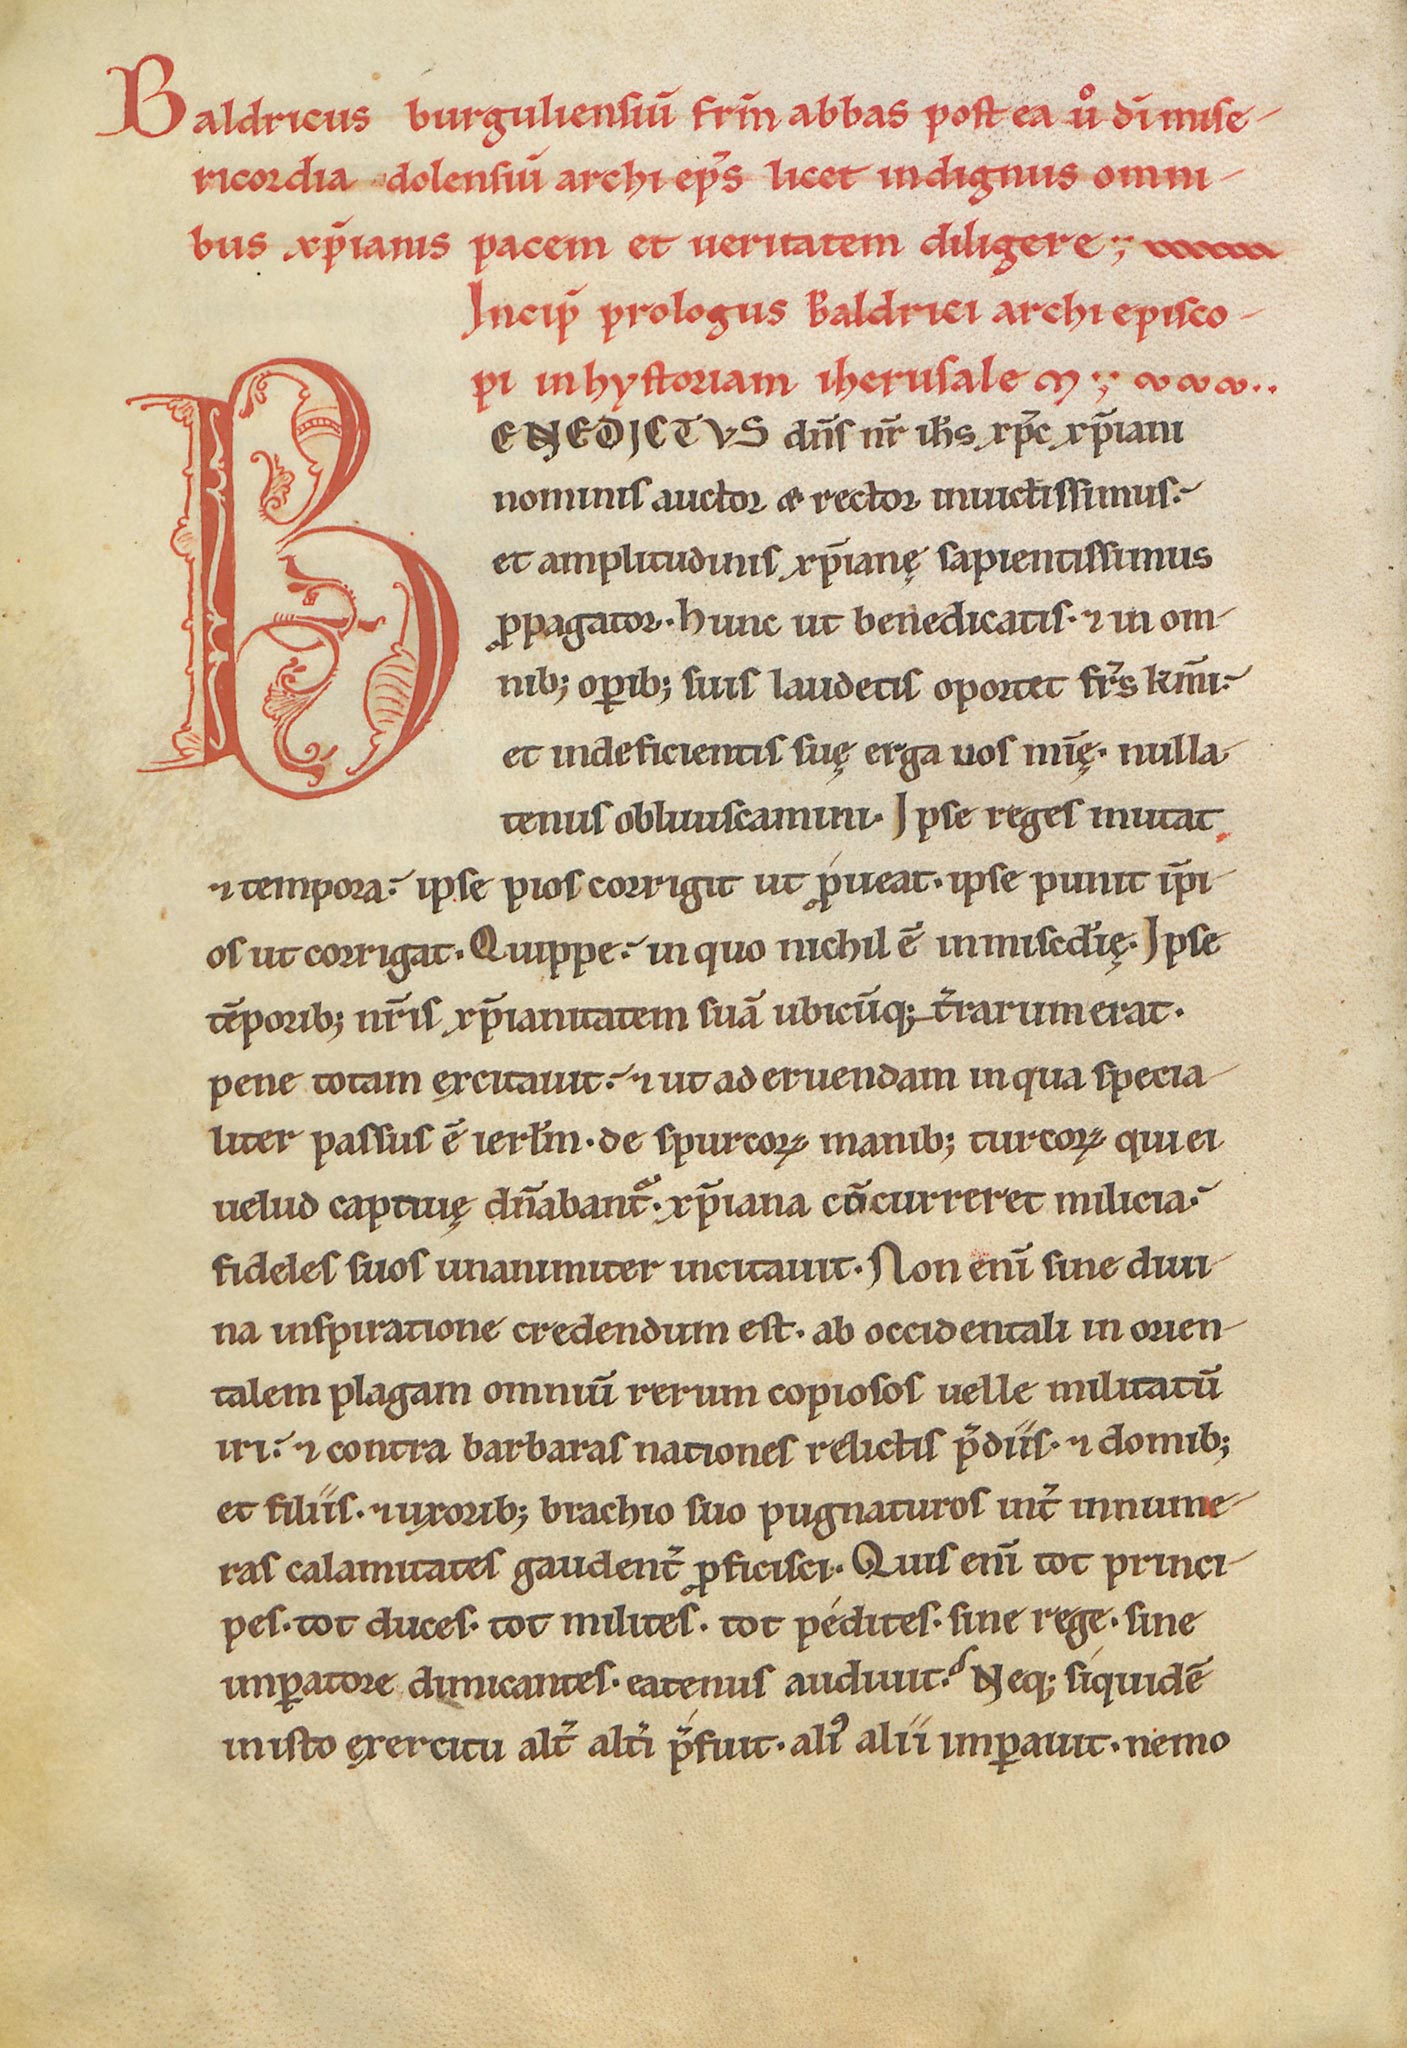 Baldricus burguliensiū fr̄m abbas postea ů dī mise-
ricordia dolensiū archi ep̄s licet indignus omni-
bus xp̄ianis pacem et ueritatem diligere;
Incip̄ prologus Baldrici archi episco-
pi in hystoriam iherusalem;
BENEDICTVS dn̄s nr̄ ih̄s xp̄c xp̄iani
nominis auctor & rector inuictissimus.
et amplitudinis xp̄ianę sapientissimus
ꝓpagator. hunc ut benedicatis. ⁊ in om-
nib; oꝑib; suis laudetis oportet fr̄s km̄i.
et indeficientis suę erga uos mīę. nulla-
tenus obliuiscamini. Ipse reges mutat
⁊ tempora. ipse pios corrigit ut ꝓueat. ipse punit īpi-
os ut corrigat. Quippe. in quo nichil ē inmiscd̄ię. Ipse
tēporib; nr̄is xp̄ianitatem suā ubicūq; t̄rarum erat.
pene totam excitauit. ⁊ ut ad eruendam in qua specia-
liter passus ē ierl̄m. de spurcoꝝ manib; turcoꝝ qui ei
uelud captiuę dn̄abant̄. xp̄iana cōcurreret milicia.
fideles suos unanimiter incitauit. Non enī sine diui-
na inspiratione credendum est. ab occidentali in orien-
talem plagam omniū rerum copiosos uelle militatū
iri. ⁊ contra barbaras nationes relictis p̄diis. ⁊ domib;
et filiis. ⁊ uxorib; brachio suo pugnaturos int̄ innume-
ras calamitates gaudent̄ ꝓficisci. Quis enī tot princi-
pes. tot duces. tot milites. tot pedites. sine rege. sine
imꝑatore dimicantes. eatenus audiuit. Neq; siquidē
in isto exercitu alt̄ alt̄i p̄fuit. aliꝰ alii imꝑauit. nemo